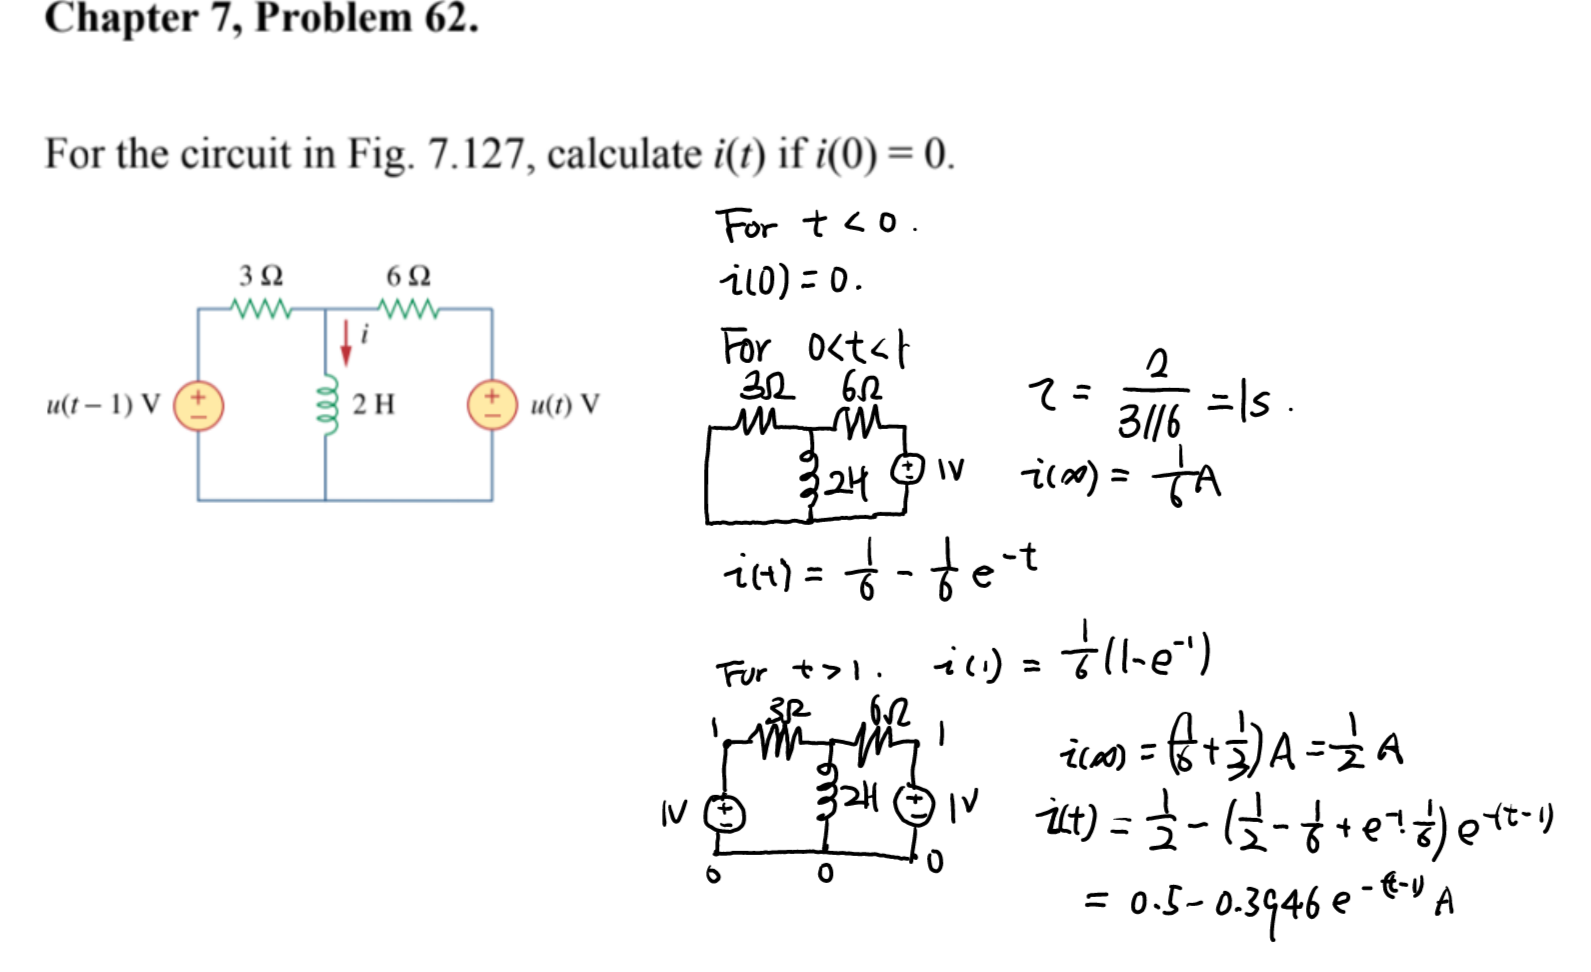 Chapter 7, Problem 62.
For the circuit in Fig. 7.127, calculate i(t) if i(0) = 0.
3 Ω 6 Ω
i
u(t – 1) V + – 2 H + – u(t) V
For t < 0 .
i(0) = 0 .
For 0<t<1
3Ω 6Ω
2H + – 1V
τ = 2/(3//6) = 1s .
i(∞) = 1/6 A
i(t) = 1/6 - 1/6 e^-t
For t > 1 . i(1) = 1/6 (1-e^-1)
1 3Ω 6Ω 1
1V + – 2H + – 1V
0 0 0
i(∞) = (1/6 + 1/3) A = 1/2 A
i(t) = 1/2 - (1/2 - 1/6 + e^-1 · 1/6) e^-(t-1)
= 0.5 - 0.3946 e^-(t-1) A